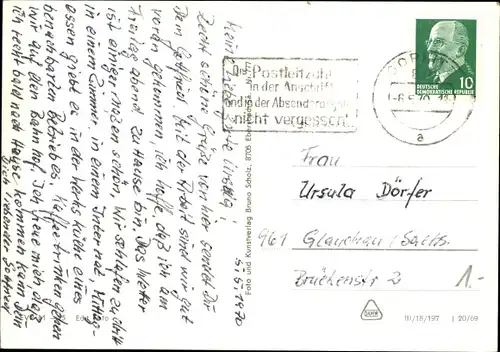 5.5.1970
Meine liebe Ursulla,
Recht schöne Grüße von hier sendet Dir
Dein Gottfried. Mit der Arbeit sind wir gut
voran gekommen, ich hoffe, daß ich am
Freitag abend zuhause bin. Das Wetter
ist einiger maßen schön. Wir schlafen zu dritt
in einem Zimmer in einem Internat, Mittag-
essen giebt es in der Werksküche eines
benachbarden Betriebes, Kaffeetrinken gehen
wir auf den Bahnhof. Ich freue mich daß
ich recht bald nach Hause kommen kann. Dein
Dich liebender Gottfried
Foto und Kunstverlag Bruno Scholz, 8705 Ebersbach
Die Postleitzahl
in der Anschrift
und in der Absenderangabe
nicht vergessen!
-6.5.70
a
10
DEUTSCHE
DEMOKRATISCHE REPUBLIK
Frau
Ursula Dörfer
961 Glauchau/Sachs.
Brückenstr 2
1.-
III/18/197 I 20/69